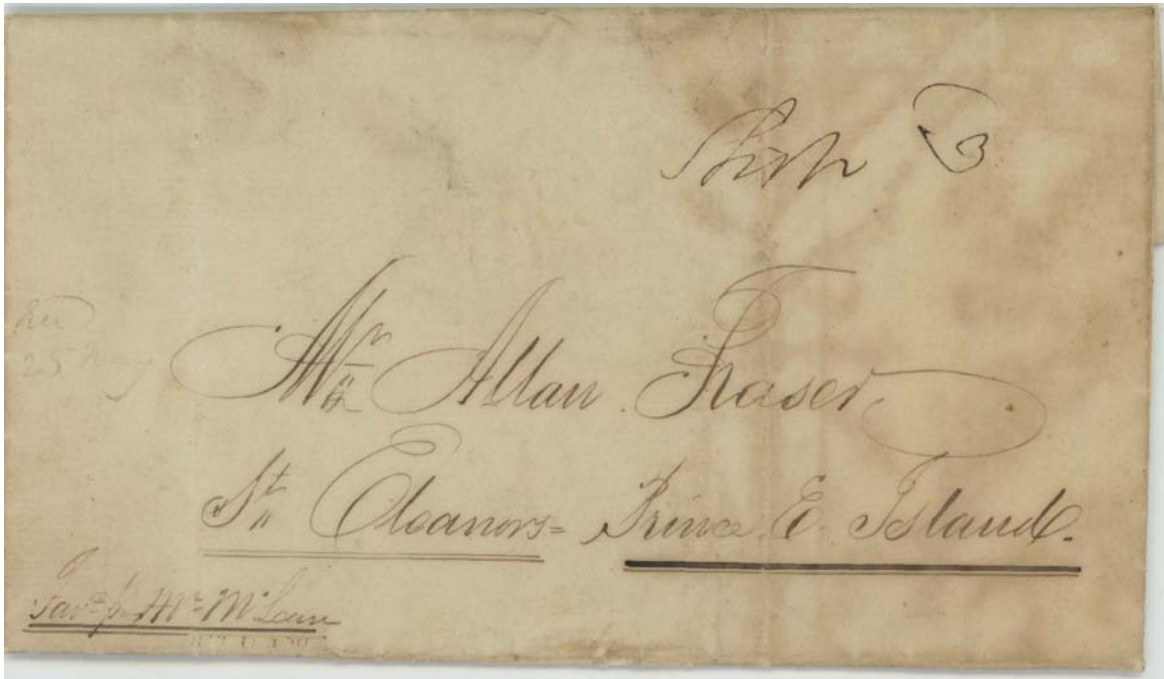 Ship 3
25 May
Mr Allan Fraser
St Eleanors = Prince E. Island.
Favd pr Mr McLean